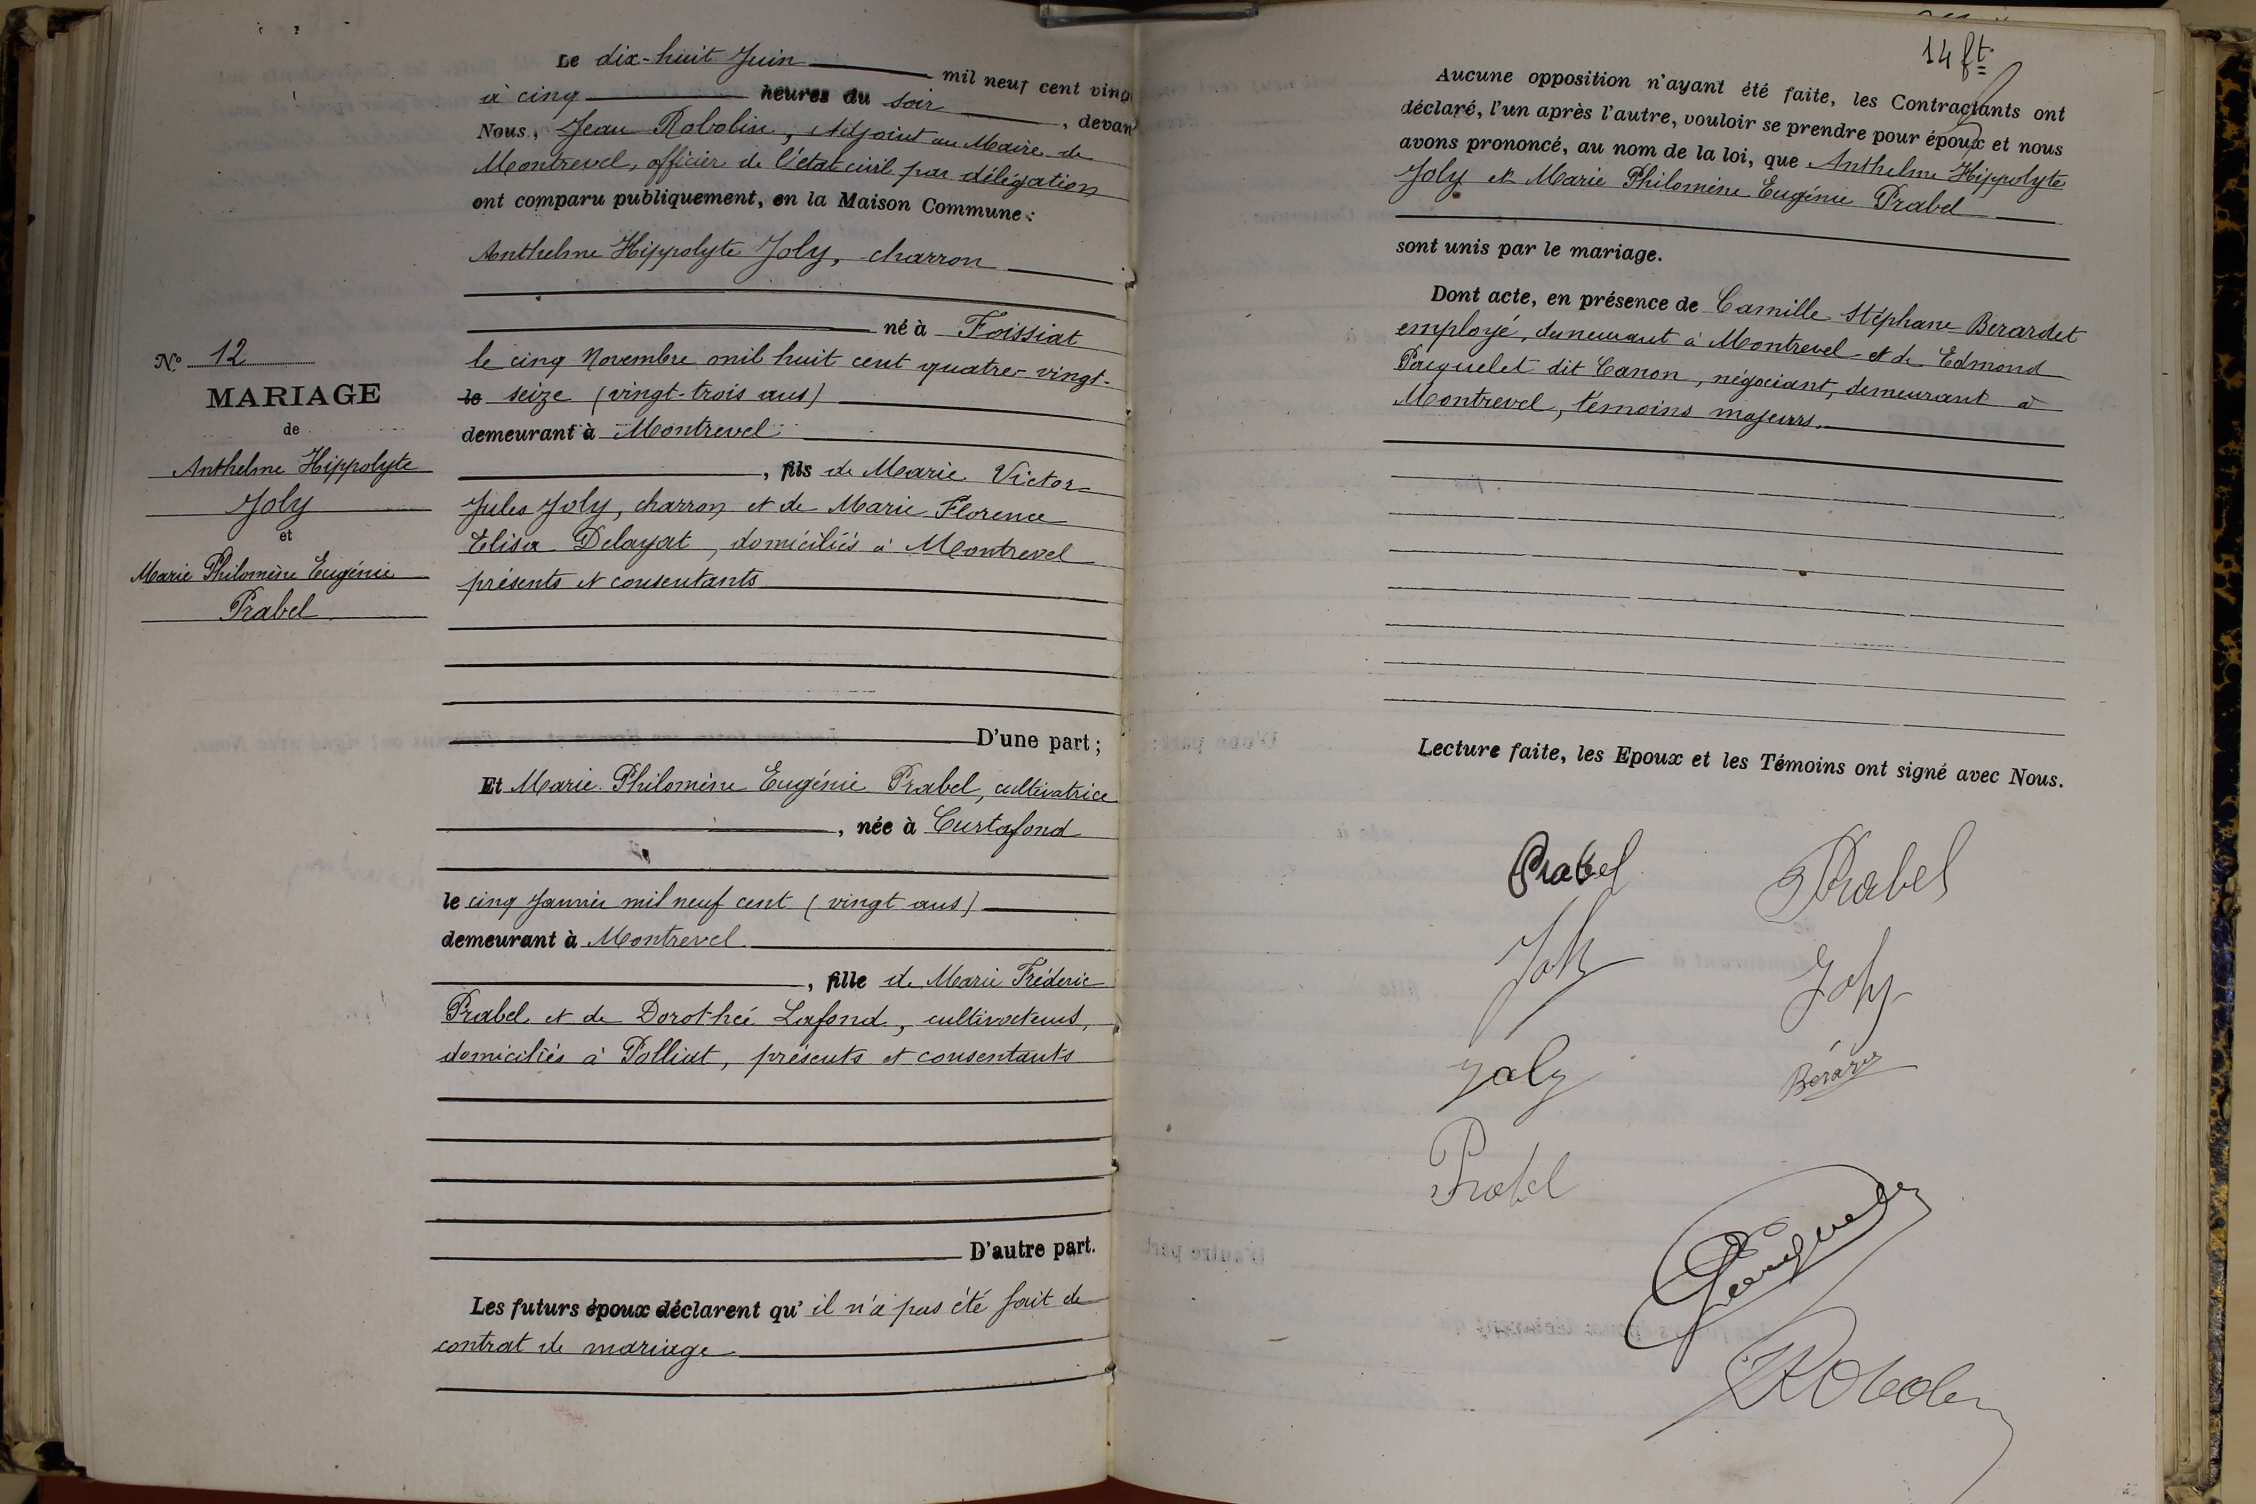 Le dix-huit Juin mil neuf cent vingt
à cinq heures du soir, devan
Nous, Jean Robolin, Adjoint au Maire de
Montrevel, officier de l'état civil par délégation
ont comparu publiquement, en la Maison Commune :
Anthelme Hippolyte Joly, charron
né à Foissiat
le cinq Novembre mil huit cent quatre-vingt-
le seize (vingt-trois ans)
demeurant à Montrevel
, fils de Marie Victor
Jules Joly, charron et de Marie Florence
Elisa Delayat, domiciliés à Montrevel
présents et consentants
D'une part ;
Et Marie Philomène Eugénie Prabel, cultivatrice
, née à Curtafond
le cinq Janvier mil neuf cent (vingt ans)
demeurant à Montrevel
, fille de Marie Fréderic
Prabel et de Dorothée Lafond, cultivateurs,
domiciliés à Polliat, présents et consentants
D'autre part.
Les futurs époux déclarent qu' il n'a pas été fait de
contrat de mariage
No 12
MARIAGE
de
Anthelme Hippolyte
Joly
et
Marie Philomène Eugénie
Prabel
14 ft
Aucune opposition n'ayant été faite, les Contractants ont
déclaré, l'un après l'autre, vouloir se prendre pour époux et nous
avons prononcé, au nom de la loi, que Anthelme Hippolyte
Joly et Marie Philomène Eugénie Prabel
sont unis par le mariage.
Dont acte, en présence de Camille Stéphane Berardet
employé, demeurant à Montrevel et de Edmond
Pacquelet dit Canon, négociant, demeurant à
Montrevel, témoins majeurs.
Lecture faite, les Epoux et les Témoins ont signé avec Nous.
Prabel Prabel
Joly Joly
Joly
Prabel